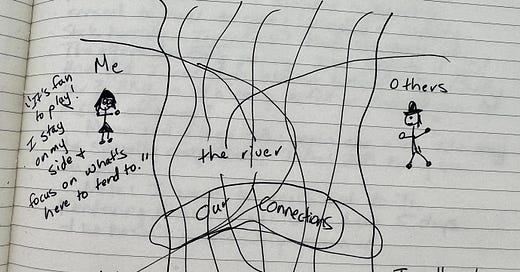 Me
"It's fun
to play!
I stay
on my
side +
focus on what's
here to tend to."
Others
the river
Our connections